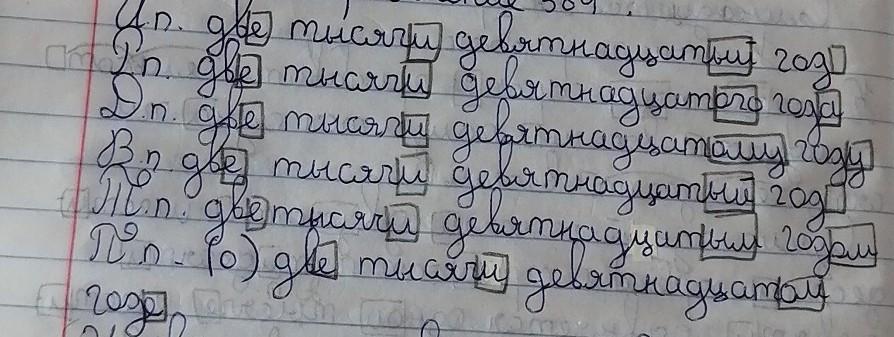 И.п. две тысячи девятнадцатый год
Р.п. две тысячи девятнадцатого года
Д.п. две тысячи девятнадцатому году
В.п. две тысячи девятнадцатый год
Т.п. две тысячи девятнадцатым годом
П.п. (о) две тысячи девятнадцатом
годе